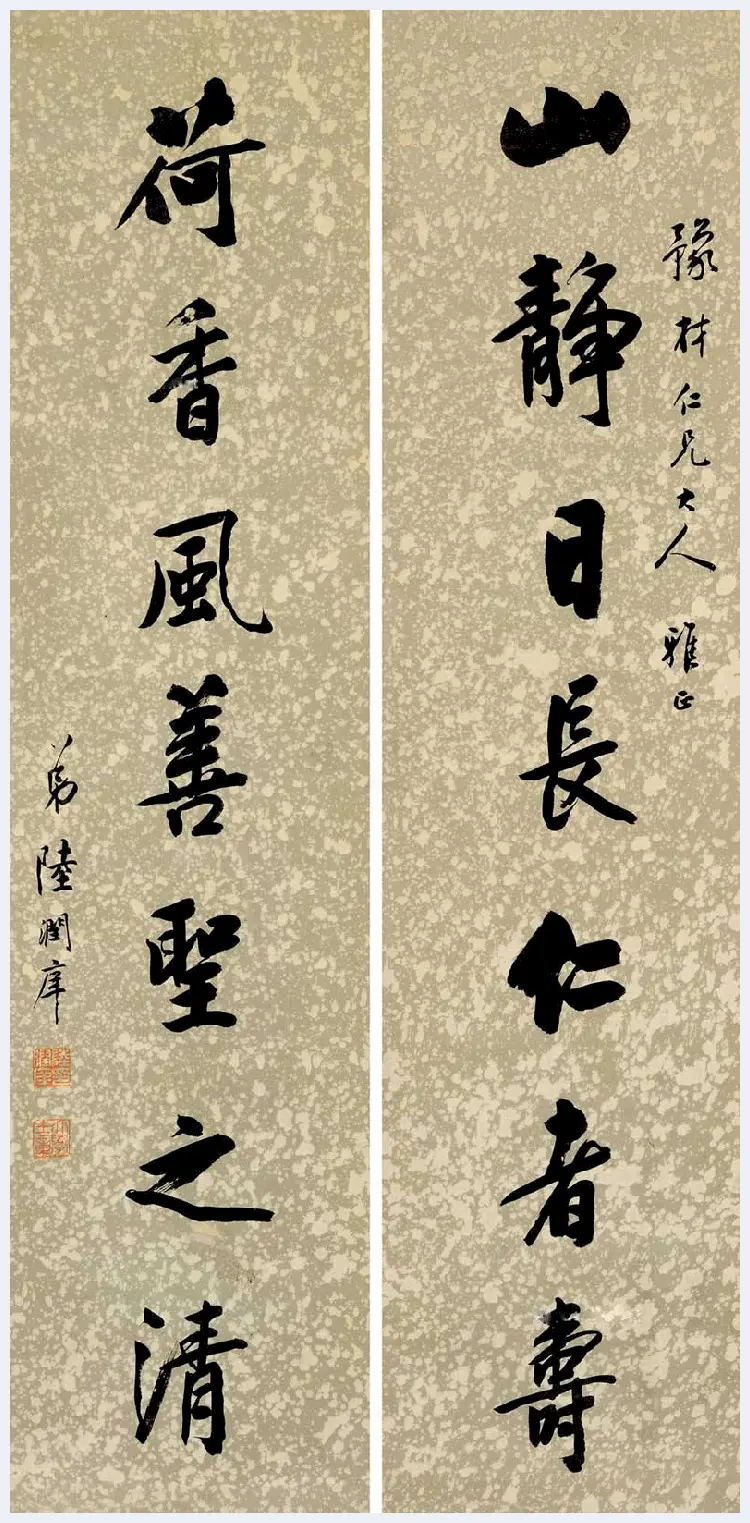 豫材仁兄大人 雅正
山靜日長仁者壽
荷香風善聖之清
弟陸潤庠